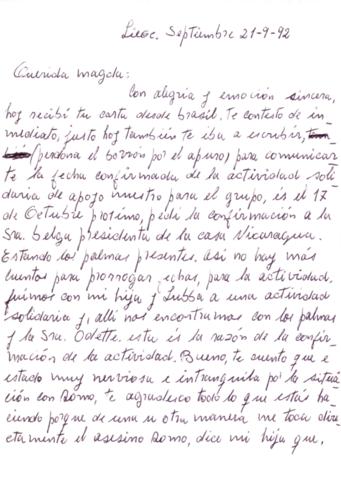 Liege. Septiembre 21-9-92
Querida Magda:
Con alegria y emoción sincera,
hoy recibí tu carta desde brasil. Te contesto de in-
mediato, justo hoy también te iba a escribir,
(perdona el borrón por el apuro) para comunicar
te la fecha confirmada de la actividad soli-
daria de apoyo nuestro para el grupo, és el 17
de Octubre proximo, pedi la confirmación a la
Sra. belga presidenta de la casa Nicaragua.
Estando los palmas presentes, asi no hay más
cuentos para prorrogar fechas, para la actividad.
fuimos con mi hija y Lubba a una actividad
solidaria y, alli nos encontramos con los palmas
y la Sra. Odette. esta és la razón de la confir-
mación de la actividad. Bueno, te cuento que e
estado muy nerviosa e intranquila por la situa-
ción con Romo, te agradesco todo lo que estás ha-
ciendo porque de una u otra manera me toca dire-
ctamente el asesino Romo, dice mi hija que,